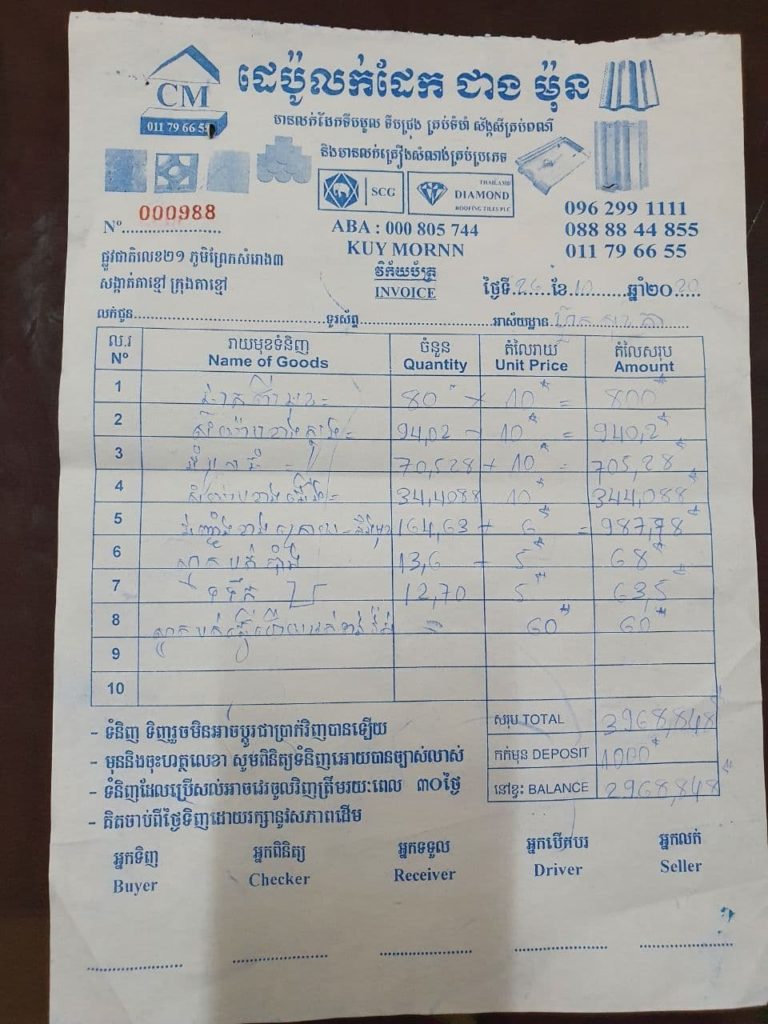 CM
011 79 66 55
ដេប៉ូលក់ដែក ជាង ម៉ុន
មានលក់ដែកទីបមូល ទីបជ្រុង គ្រប់ទំហំ ស័ង្កសីគ្រប់ពណ៌
និងមានលក់គ្រឿងសំណង់គ្រប់ប្រភេទ
SCG
THAILAND
DIAMOND
ROOFING TILES PLC
Nº 000988
ABA : 000 805 744
KUY MORNN
096 299 1111
088 88 44 855
011 79 66 55
ផ្លូវជាតិលេខ២១ ភូមិព្រែកសំរោង៣
សង្កាត់តាខ្មៅ ក្រុងតាខ្មៅ
វិក័យប័ត្រ
INVOICE
ថ្ងៃទី 26 ខែ 10 ឆ្នាំ២០20
លក់ជូន ទូរស័ព្ទ អាស័យដ្ឋាន
ល.រ Nº រាយមុខទំនិញ Name of Goods ចំនួន Quantity តំលៃរាយ Unit Price តំលៃសរុប Amount
1 80 10 = 800
2 94,02 10 = 940,2
3 70,528 10 = 705,28
4 34,4088 10 344,088
5 164,63 6 = 987,78
6 13,6 5 68
7 12,70 5 63,5
8 60 60
9
10
សរុប TOTAL 3968,848
កក់មុន DEPOSIT 1000
នៅខ្វះ BALANCE 2968,848
- ទំនិញ ទិញរួចមិនអាចប្តូរជាប្រាក់វិញបានឡើយ
- មុននិងចុះហត្ថលេខា សូមពិនិត្យទំនិញអោយបានច្បាស់លាស់
- ទំនិញដែលប្រើសល់អាចវេរចូលវិញត្រឹមរយៈពេល ៣០ថ្ងៃ
- គិតចាប់ពីថ្ងៃទិញដោយរក្សានូវសភាពដើម
អ្នកទិញ អ្នកពិនិត្យ អ្នកទទួល អ្នកបើកបរ អ្នកលក់
Buyer Checker Receiver Driver Seller